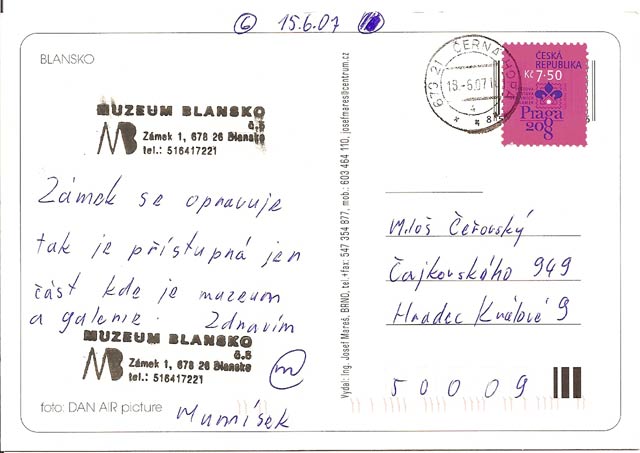 6 15.6.07
BLANSKO
MUZEUM BLANSKO
č.5
Zámek 1, 678 26 Blansko
tel.: 516417221
Zámek se opravuje
tak je přístupná jen
část kde je muzeum
a galerie. Zdravím
MUZEUM BLANSKO
č.5
Zámek 1, 678 26 Blansko
tel.: 516417221
foto: DAN AIR picture
Vydal: Ing. Josef Mareš, BRNO, tel.+fax: 547 354 877, mob.: 603 464 110, josefmares@centrum.cz
679 21 ČERNÁ HORA
ČESKÁ
REPUBLIKA
Kč 7·50
Praga
2008
Miloš Čeřovský
Čajkovského 949
Hradec Králové 9
50009